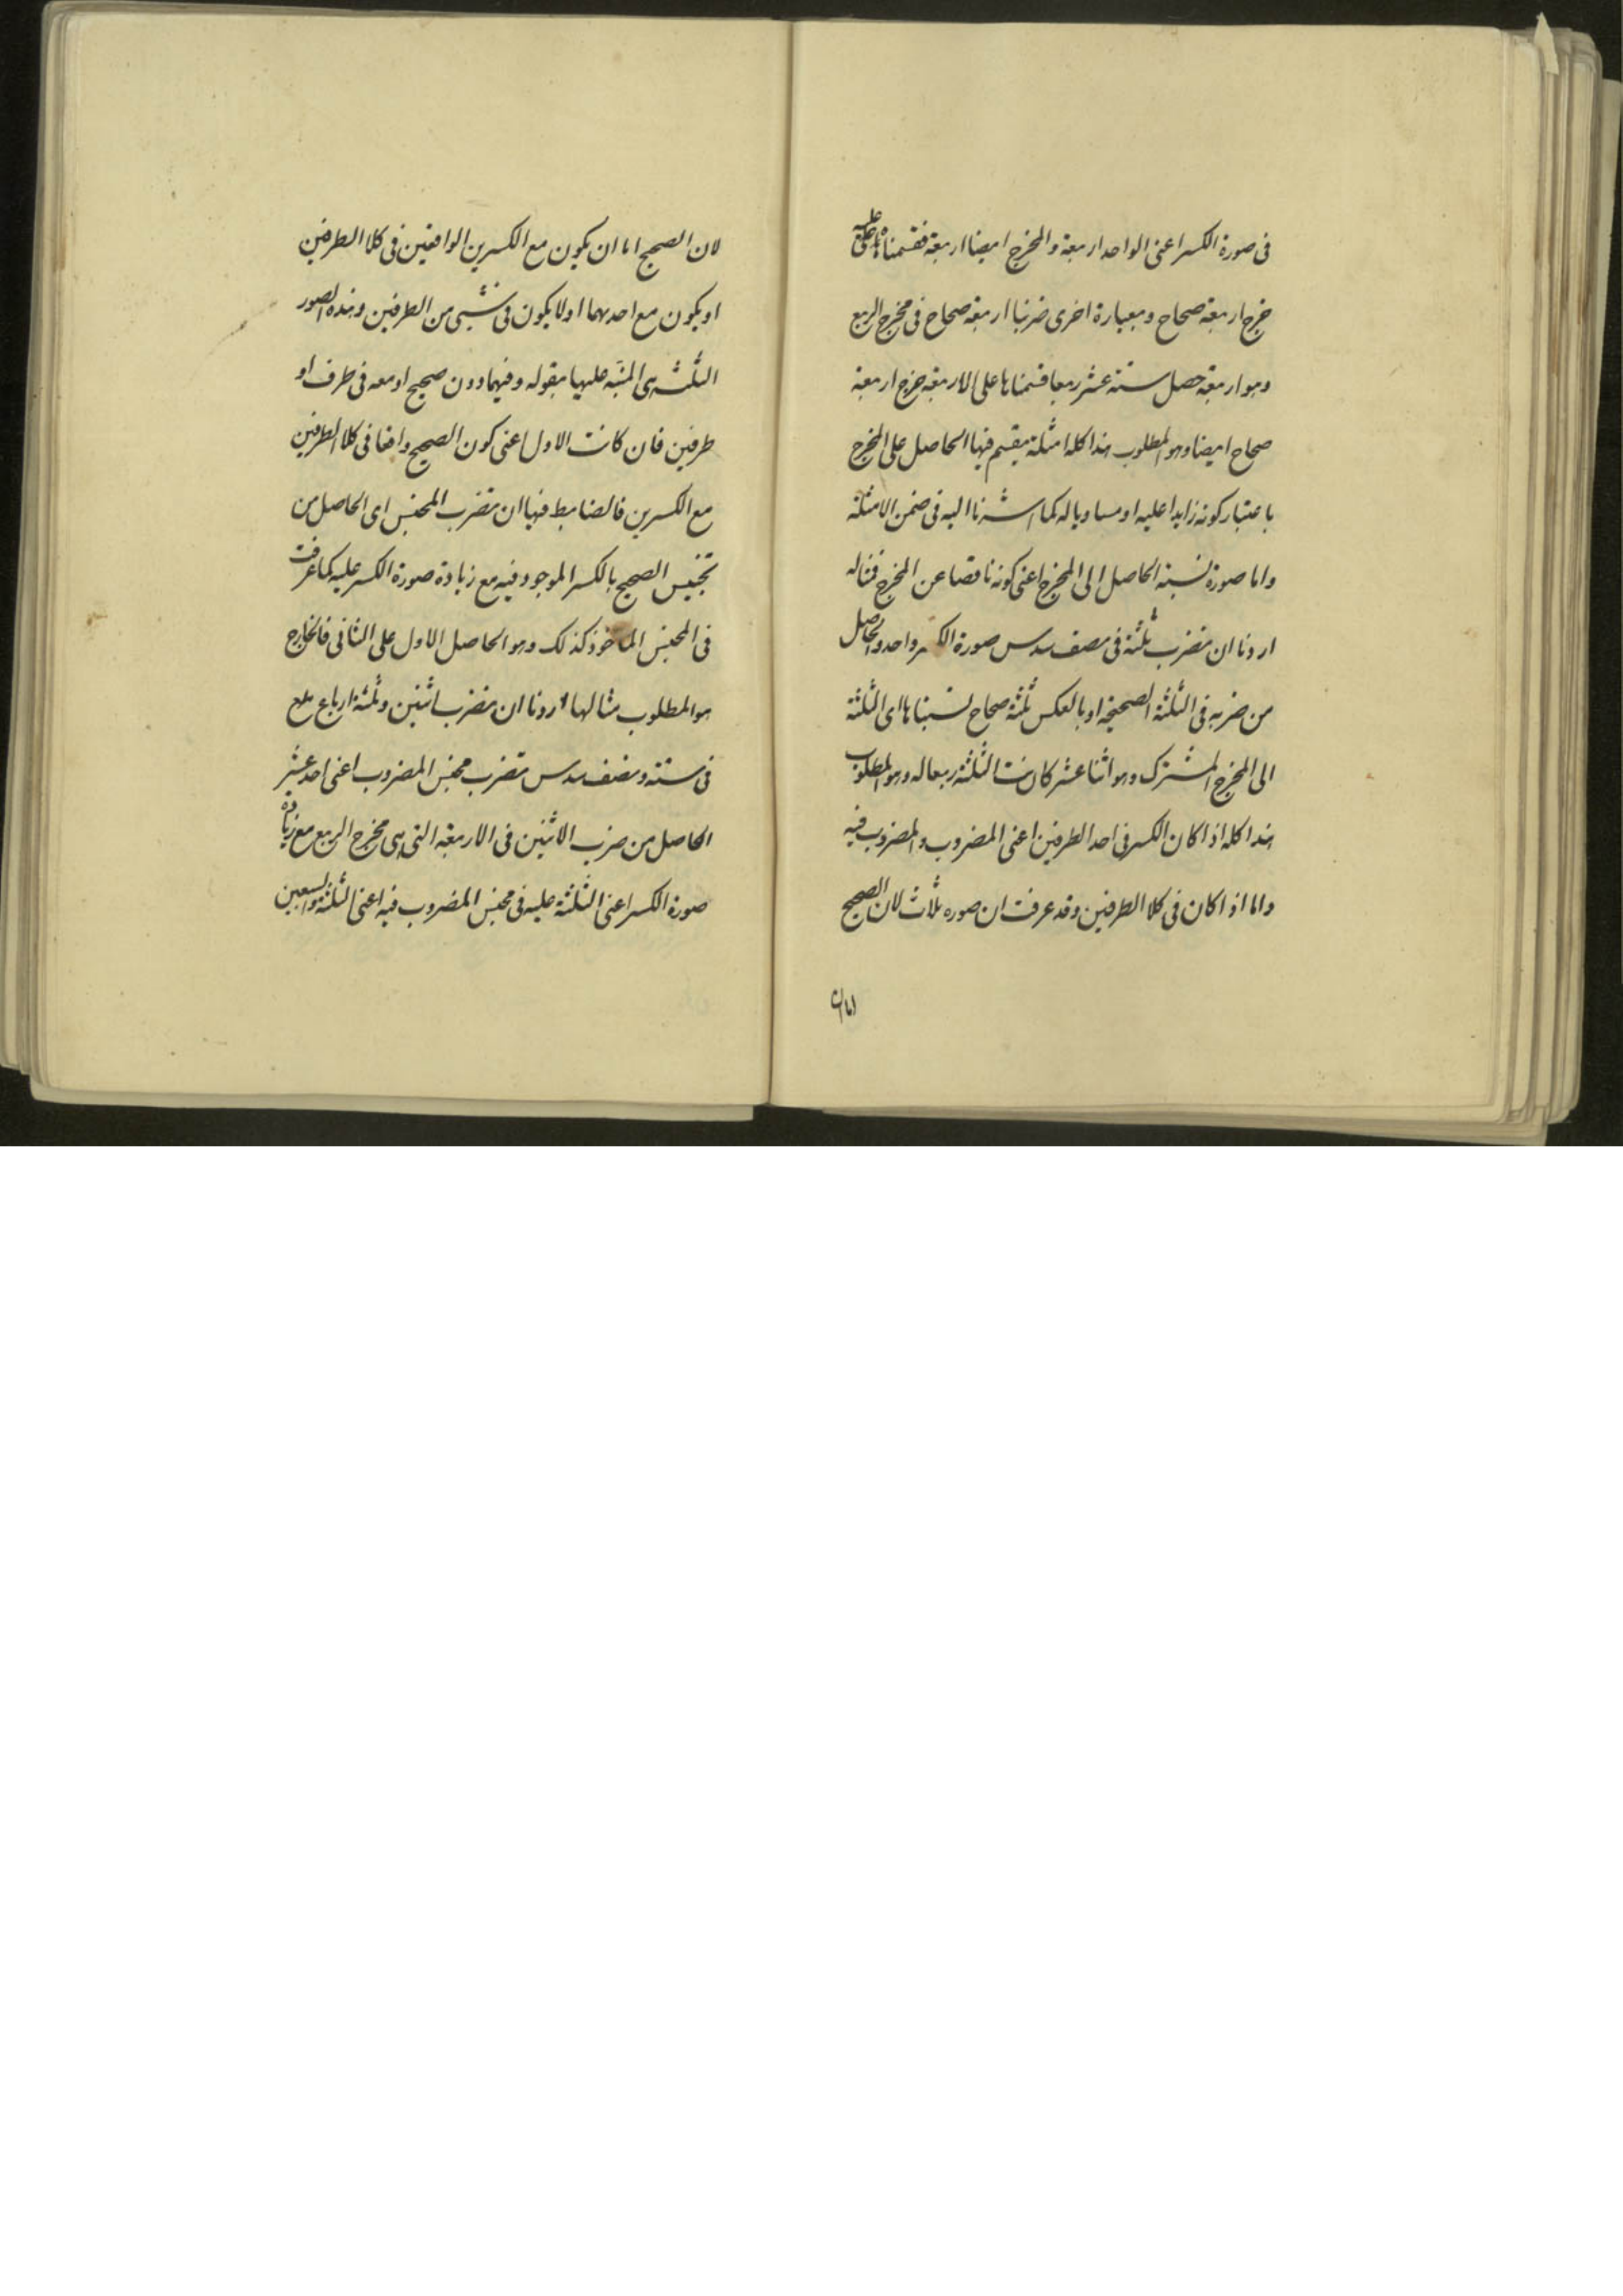 فى صورة الكسر اعنى الواحد اربعة والمخرج ايضا اربعة فقسمناها عليه
خرج اربعة صحاح وبعبارة اخرى ضربنا اربعة صحاح فى مخرج الربع
وهو اربعة حصل ستة عشر ربعا قسمناها على الاربعة خرج اربعة
صحاح ايضا وهو المطلوب هذا كله امثلة يقسم فيها الحاصل على المخرج
باعتبار كونه زايدا عليه او مساويا له كما اشرنا اليه فى ضمن الامثلة
واما صورة نسبة الحاصل الى المخرج اعنى كونه ناقصا عن المخرج فمثاله
اردنا ان نضرب ثلثة فى نصف سدس صورة الكسر واحد والحاصل
من ضربه فى الثلثة الصحيحة او بالعكس ثلثة صحاح نسبناها اى الثلثة
الى المخرج المشترك وهو اثنا عشر كانت الثلثة ربعا له وهو المطلوب
هذا كله اذا كان الكسر فى احد الطرفين اعنى المضروب والمضروب فيه
واما اذا كان فى كلا الطرفين وقد عرفت ان صوره ثلاث لان الصحيح
اما ان
لان الصحيح اما ان يكون مع الكسرين الواقعين فى كلا الطرفين
او يكون مع احدهما او لا يكون فى شىء من الطرفين وهذه الصور
الثلث هى المنبه عليها بقوله وفيهما دون صحيح او معه فى طرف او
طرفين فان كانت الاول اعنى كون الصحيح واقعا فى كلا الطرفين
مع الكسرين فالضابط فيها ان تضرب المجنس اى الحاصل من
تجنيس الصحيح بالكسر الموجود فيه مع زيادة صورة الكسر عليه كما عرفت
فى المجنس الماخوذ كذلك وهو الحاصل الاول على الثانى فالخارج
هو المطلوب مثالها اردنا ان نضرب اثنين وثلثة ارباع
فى ستة ونصف سدس تضرب مجنس المضروب اعنى احد عشر
الحاصل من ضرب الاثنين فى الاربعة التى هى مخرج الربع مع زيادة
صورة الكسر اعنى الثلثة عليه فى مجنس المضروب فيه اعنى الثلثة والسبعين